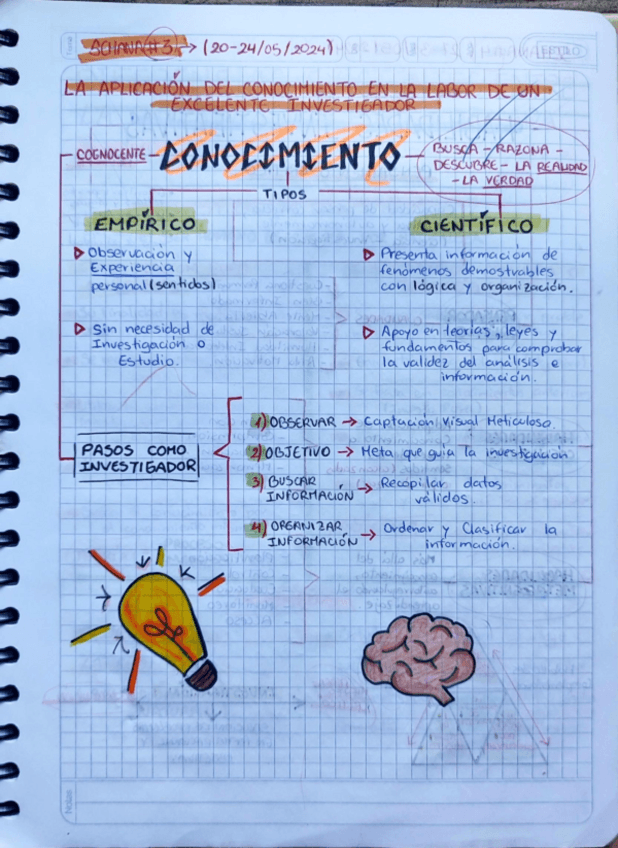 SEMANA # 3 → (20-24/05/2024)
LA APLICACIÓN DEL CONOCIMIENTO EN LA LABOR DE UN
EXCELENTE INVESTIGADOR
COGNOCENTE - CONOCIMIENTO - BUSCA - RAZONA -
DESCUBRE - LA REALIDAD
- LA VERDAD
TIPOS
EMPÍRICO
Observación y
Experiencia
personal (sentidos)
Sin necesidad de
Investigación o
Estudio.
CIENTÍFICO
Presenta información de
fenómenos demostrables
con lógica y organización.
Apoyo en teorías, leyes y
fundamentos para comprobar
la validez del análisis e
información.
PASOS COMO
INVESTIGADOR
1) OBSERVAR → Captación Visual Meticulosa.
2) OBJETIVO → Meta que guía la investigación
3) BUSCAR
INFORMACIÓN → Recopilar datos
válidos.
4) ORGANIZAR
INFORMACIÓN → Ordenar y Clasificar la
información.
Notas